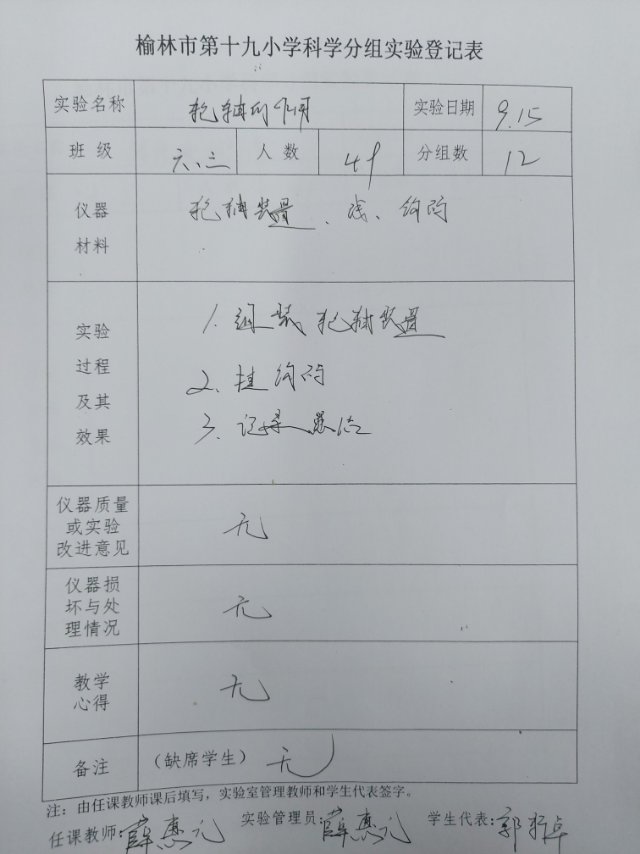 榆林市第十九小学科学分组实验登记表
实验名称 轮轴的作用 实验日期 9.15
班级 六、三 人数 49 分组数 12
仪器 轮轴装置、线、钩码
材料
实验 1. 组装轮轴装置
过程 2. 挂钩码
及其 3. 记录总结
效果
仪器质量
或实验 无
改进意见
仪器损
坏与处 无
理情况
教学 无
心得
备注 (缺席学生) 无
注：由任课教师课后填写，实验室管理教师和学生代表签字。
任课教师：薛惠元 实验管理员：薛惠元 学生代表：郭